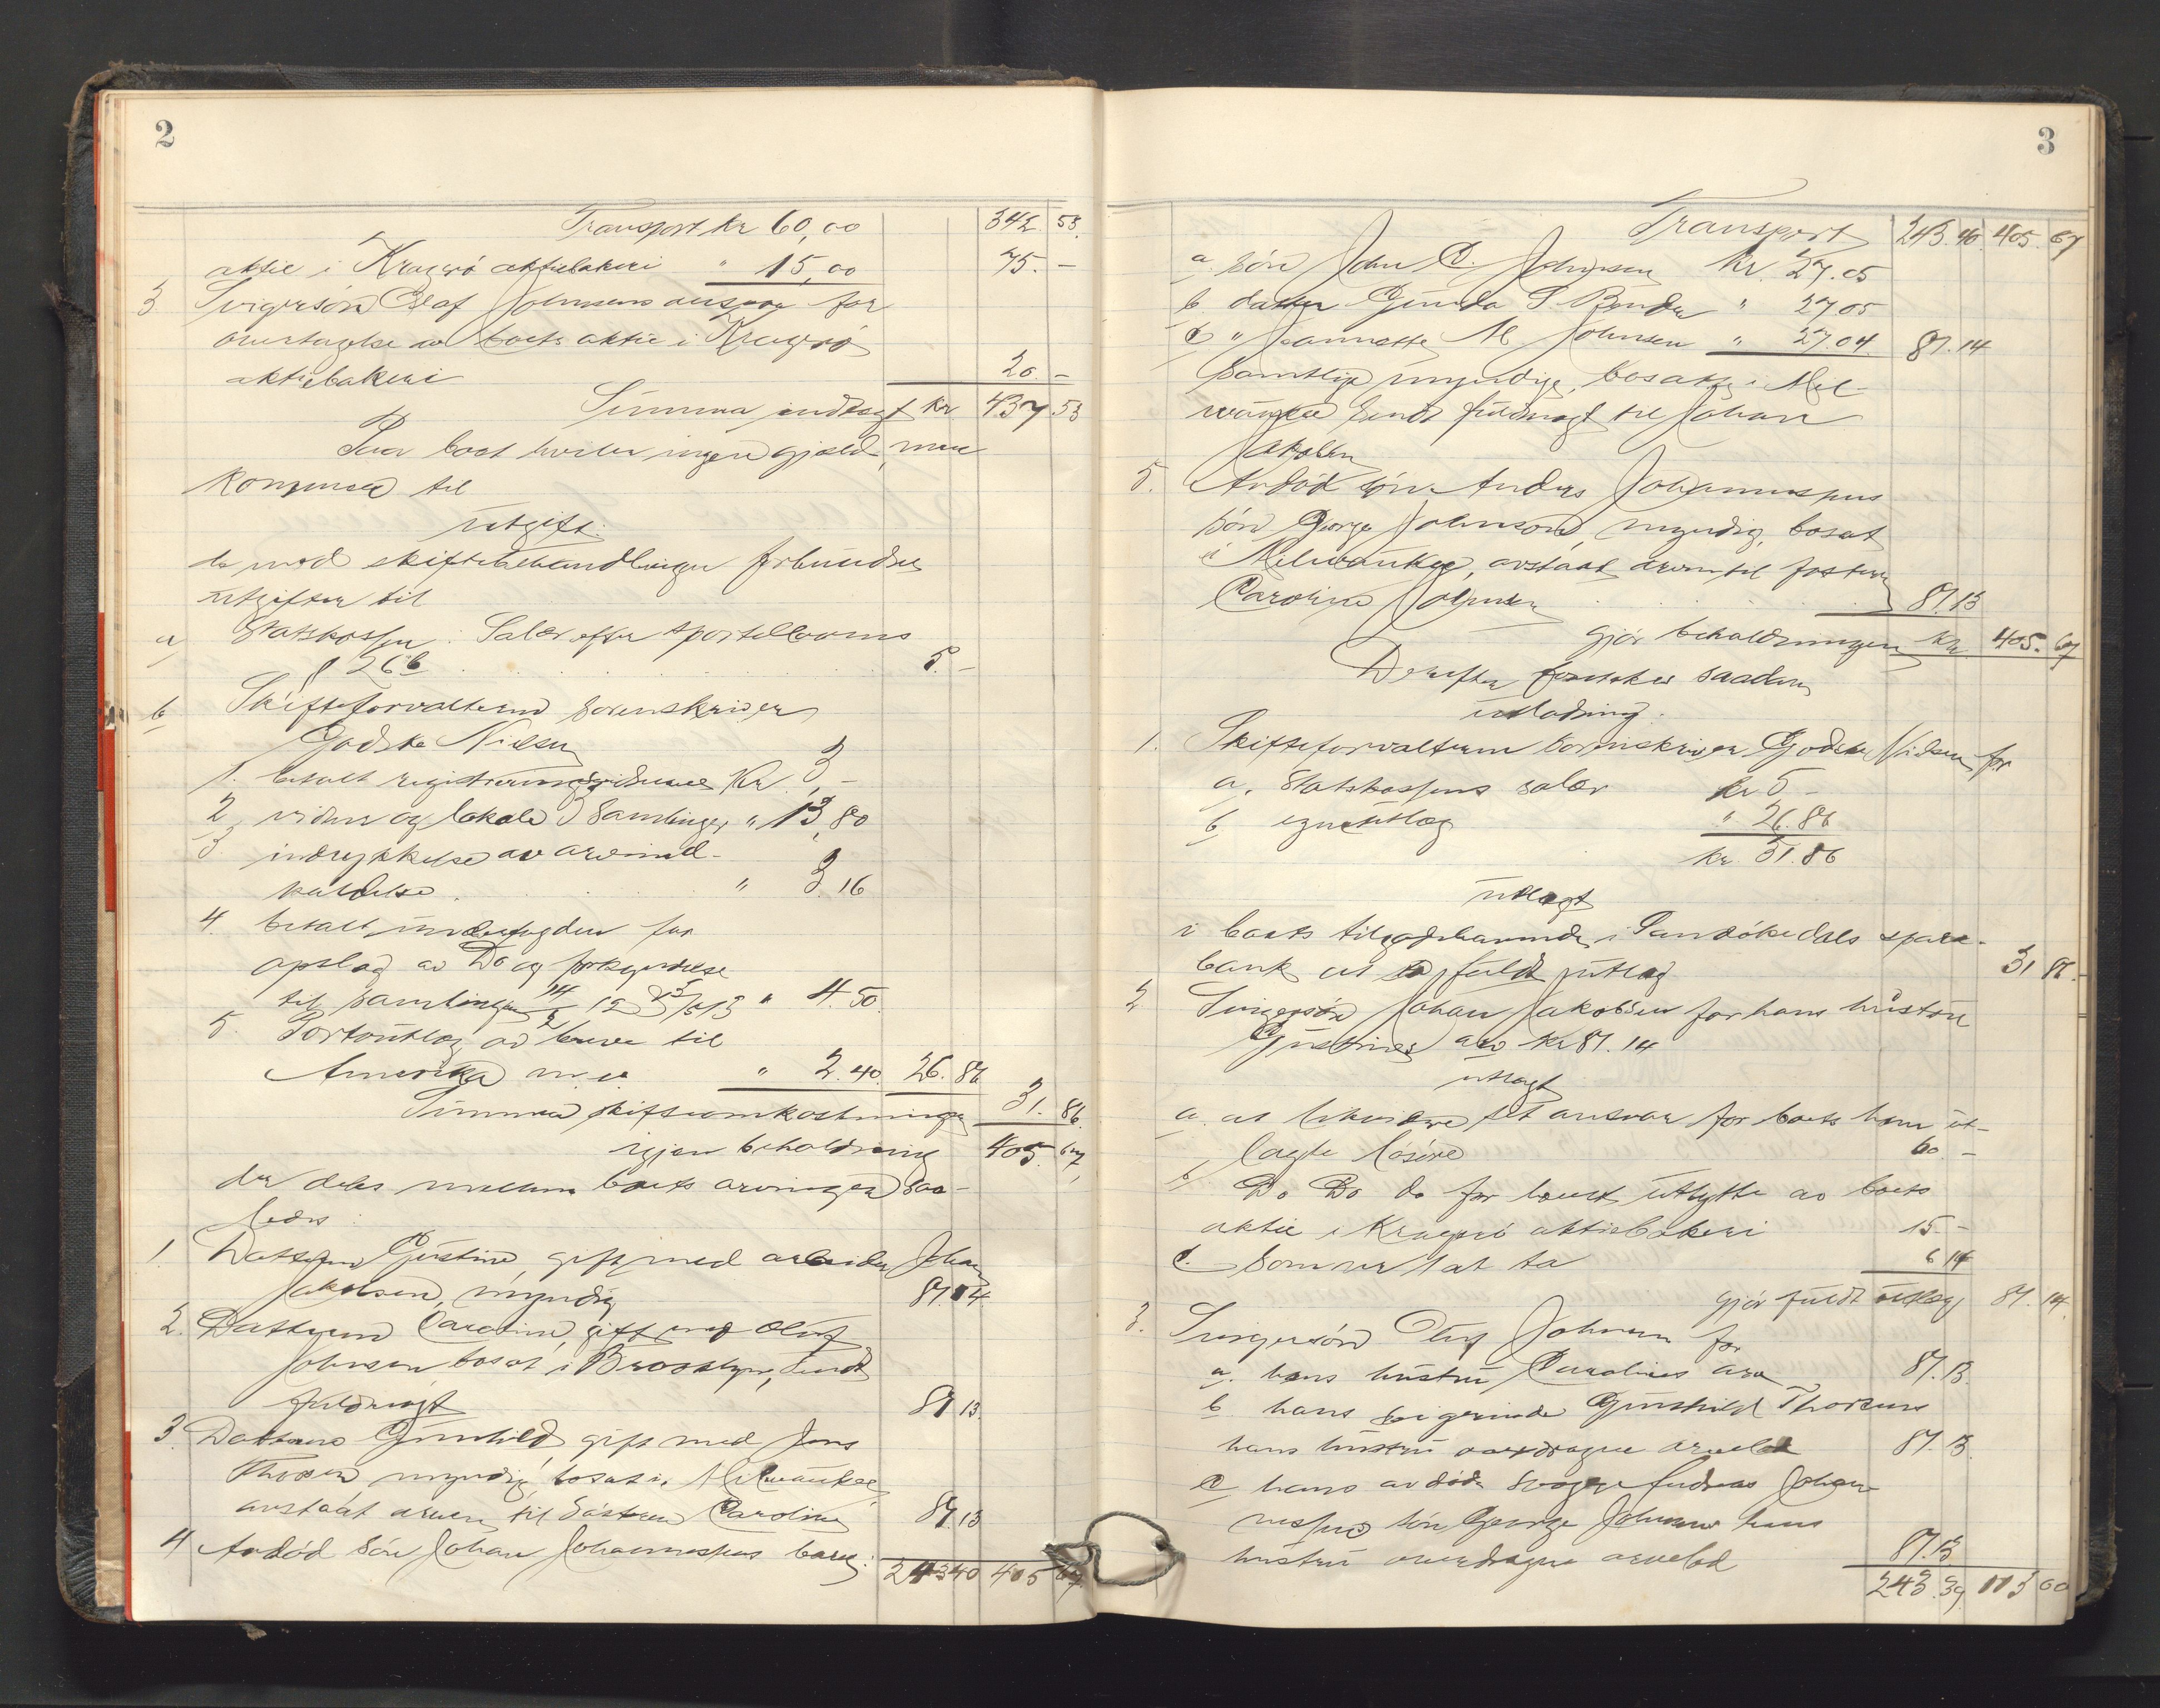 2
Transport kr 60,00 342. 53.
aktie i Kragerö aktiebakeri " 15,00 75. -
3. Svigersön Olaf Johnsens ansvar for
overtagelse av boets aktie i Kragerö
aktiebakeri 20. -
Summa indtægt kr. 437. 53
Paa boet hviler ingen gjæld, men
kommer til
utgift:
de med skiftebehandlingen forbundne
utgifter til
a Statskassen: Salær efter sportellovens
§ 26 b 5. -
b Skifteforvalteren sorenskriver
Godske Nielsen
1. betalt registreringsvidnene Kr. 3,-
2 vidner og lokale 3 samlinger " 13,80
3. indrykkelse av arveind-
kaldelse " 3.16
4. betalt underfogden for
opslag av Do og forkyndelse
til samlingen " 4.50
5. Portoutlæg av breve til
Amerika m.v. " 2.40. 26. 86
Summa skifteomkostninger 31. 86.
igjen beholdning 405. 67,
der deles mellem boets arvinger saa-
ledes:
1. Datteren Gustine, gift med arbeider Johan
Jakobsen, myndig 81.14
2. Datteren Caroline, gift med Oluf
Johnsen bosat i Brooklyn, sendt
fuldmagt 81.13.
3. Datteren Gunhild, gift med Jens
Thorsen, myndig, bosat i Milwaukee
avstaat arven til söstren Caroline 81.13
4 Avdöd sön Johan Johannessens barn:
243 40 405 67.
3
Transport 243. 40. 405. 67
a. sön John C. Johnsen kr. 27.05
b datter Gunda S. Bender " 27.05
c " Jannette M. Johnsen " 27.04. 81.14
samtlige myndige, bosatte i Mil-
waukee sendt fuldmagt til Johan
Jakobsen
5. Avdöd sön Anders Johannessens
sön George Johnson, myndig, bosat
i Milwaukee, avstaat arven til fasteren
Caroline Johnsen 81.13
gjör beholdningen kr. 405. 67
Derefter foretokes saadan
utlodning:
1. Skifteforvalteren sorenskriver Godske Nielsen for
a. Statskassens salær kr 5 -
b egne utlæg " 26.86
kr. 31.86
utlagt
i boets tilgodehavende i Sandökedals spare-
bank at ta fuldt utlæg 31 86.
2 Svigersön Johan Jakobsen for hans hustru
Gustines arv kr 81.14
utlagt
a. at likvidere sit ansvar for boets ham ut-
lagte lösöre 60. -
b Do Do do for utlytte av boets
aktie i Kragerö aktiebakeri 15 -
c. Sommer at ta 6 14
gjör fuldt utlæg 81. 14.
3. Svigersön Oluf Johnsen for
a. hans hustru Carolines arv 81.13.
b hans svigerinde Gunhild Thorsens
hans hustru overdragne arvelod 81.13.
c hans avdöde svoger Andreas Johan-
nessens sön George Johnsens hans
hustru overdragne arvelod 81.13.
243.39. 113 00